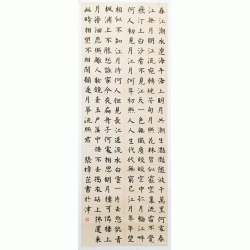 春江潮水連海平海上明月共潮生灧灧隨波千萬里何處春
江無月明江流宛轉繞芳甸月照花林皆似霰空裏流霜不覺
飛汀上白沙看不見江天一色無纖塵皎皎空中孤月輪江畔
何人初見月江月何年初照人人生代代無窮已江月年年
相似不知江月待何人但見長江送流水白雲一片去悠悠青
楓浦上不勝愁誰家今夜扁舟子何處相思明月樓可憐樓上
月徘徊應照離人妝鏡臺玉戶簾中卷不去搗衣砧上拂還來
此時相望不相聞願逐月華流照君 張書於津